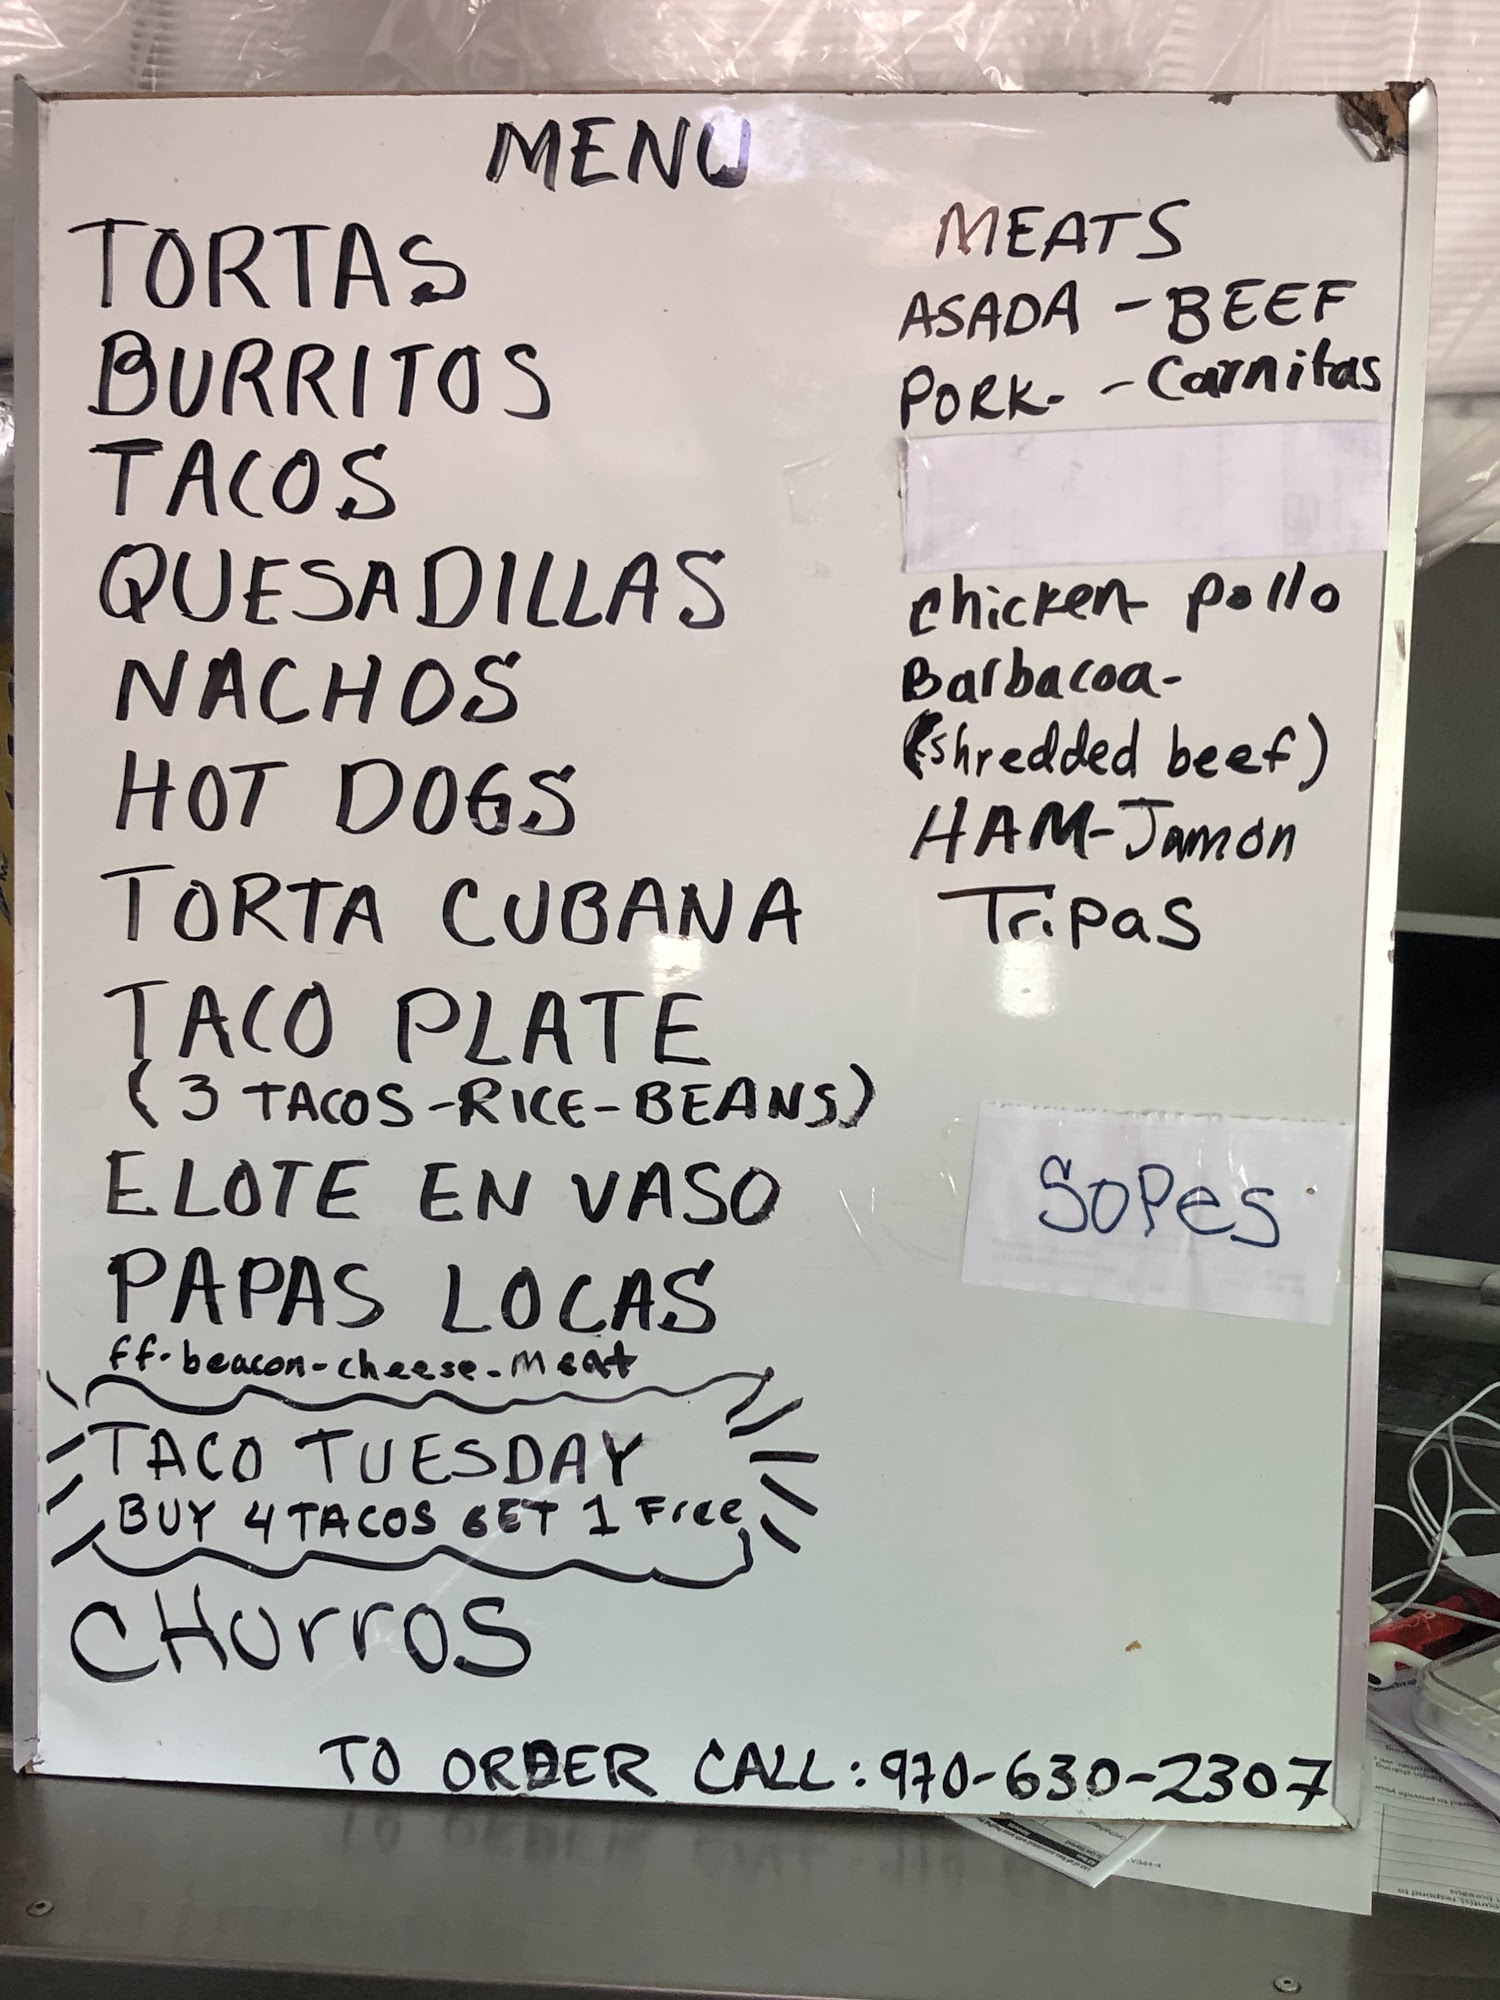 MENU
TORTAS
BURRITOS
TACOS
QUESADILLAS
NACHOS
HOT DOGS
TORTA CUBANA
TACO PLATE
(3 TACOS-RICE-BEANS)
ELOTE EN VASO
PAPAS LOCAS
ff-beacon-cheese-meat
TACO TUESDAY
BUY 4 TACOS GET 1 Free
CHurroS
MEATS
ASADA - BEEF
PORK- - Carnitas
chicken pollo
Barbacoa-
(shredded beef)
HAM-Jamon
Tripas
SOPes
TO ORDER CALL: 970-630-2307